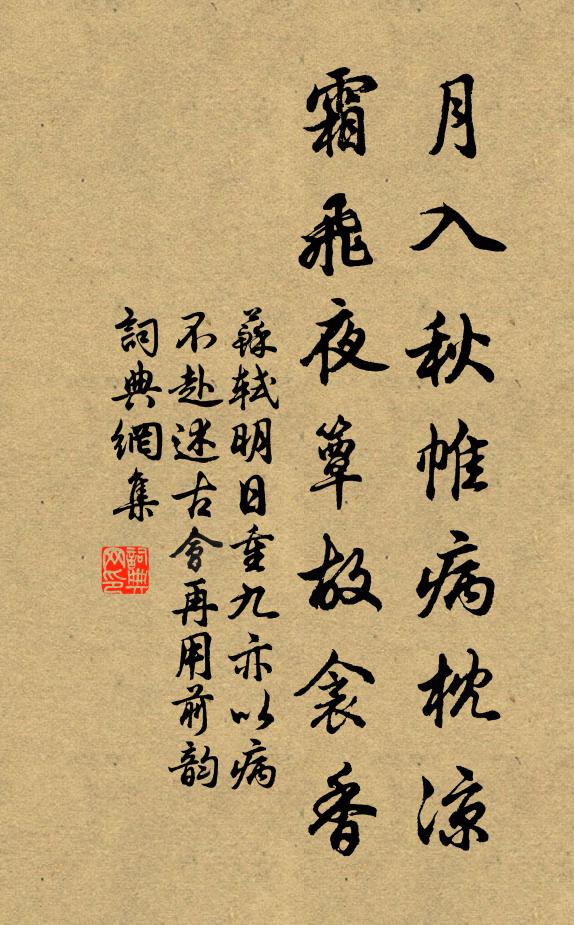 月入秋帷病枕涼
霜飛夜簟故衾香
蘇軾明日重九亦以病
不赴述古會再用前韵
詞典網集
詞典网印